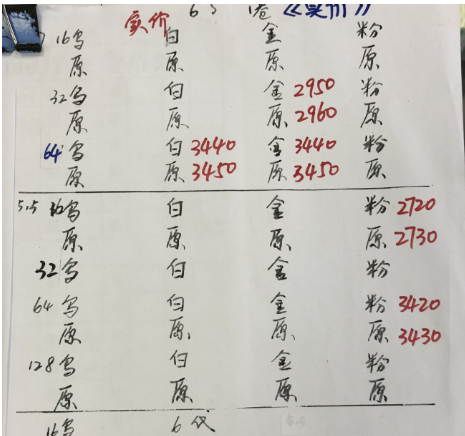 实价 6S 《实价》
16乌 白 金 粉
原 原 原 原
32乌 白 金2950 粉
原 原 原2960 原
64乌 白3440 金3440 粉
原 原3450 原3450 原
5.5 16乌 白 金 粉2720
原 原 原 原2730
32乌 白 金 粉
64乌 白 金 粉3420
原 原 原 原3430
128乌 白 金 粉
原 原 原 原
16乌 6代